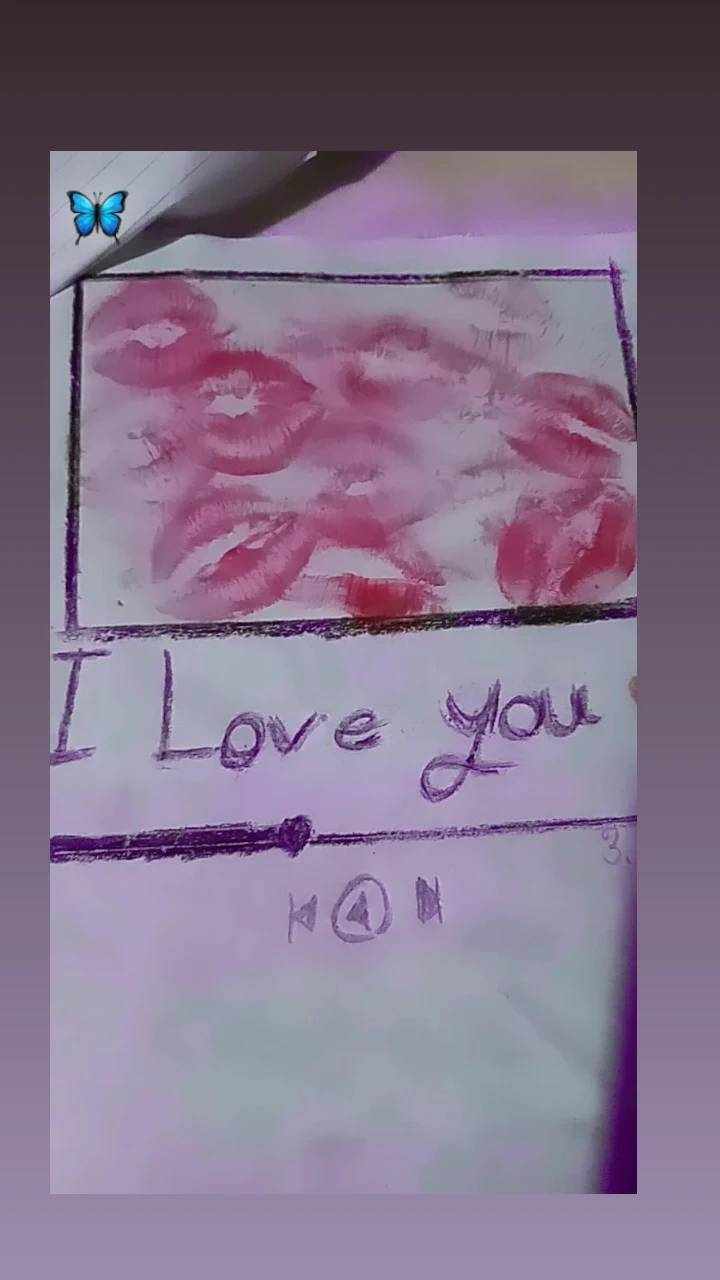 I Love you
3.